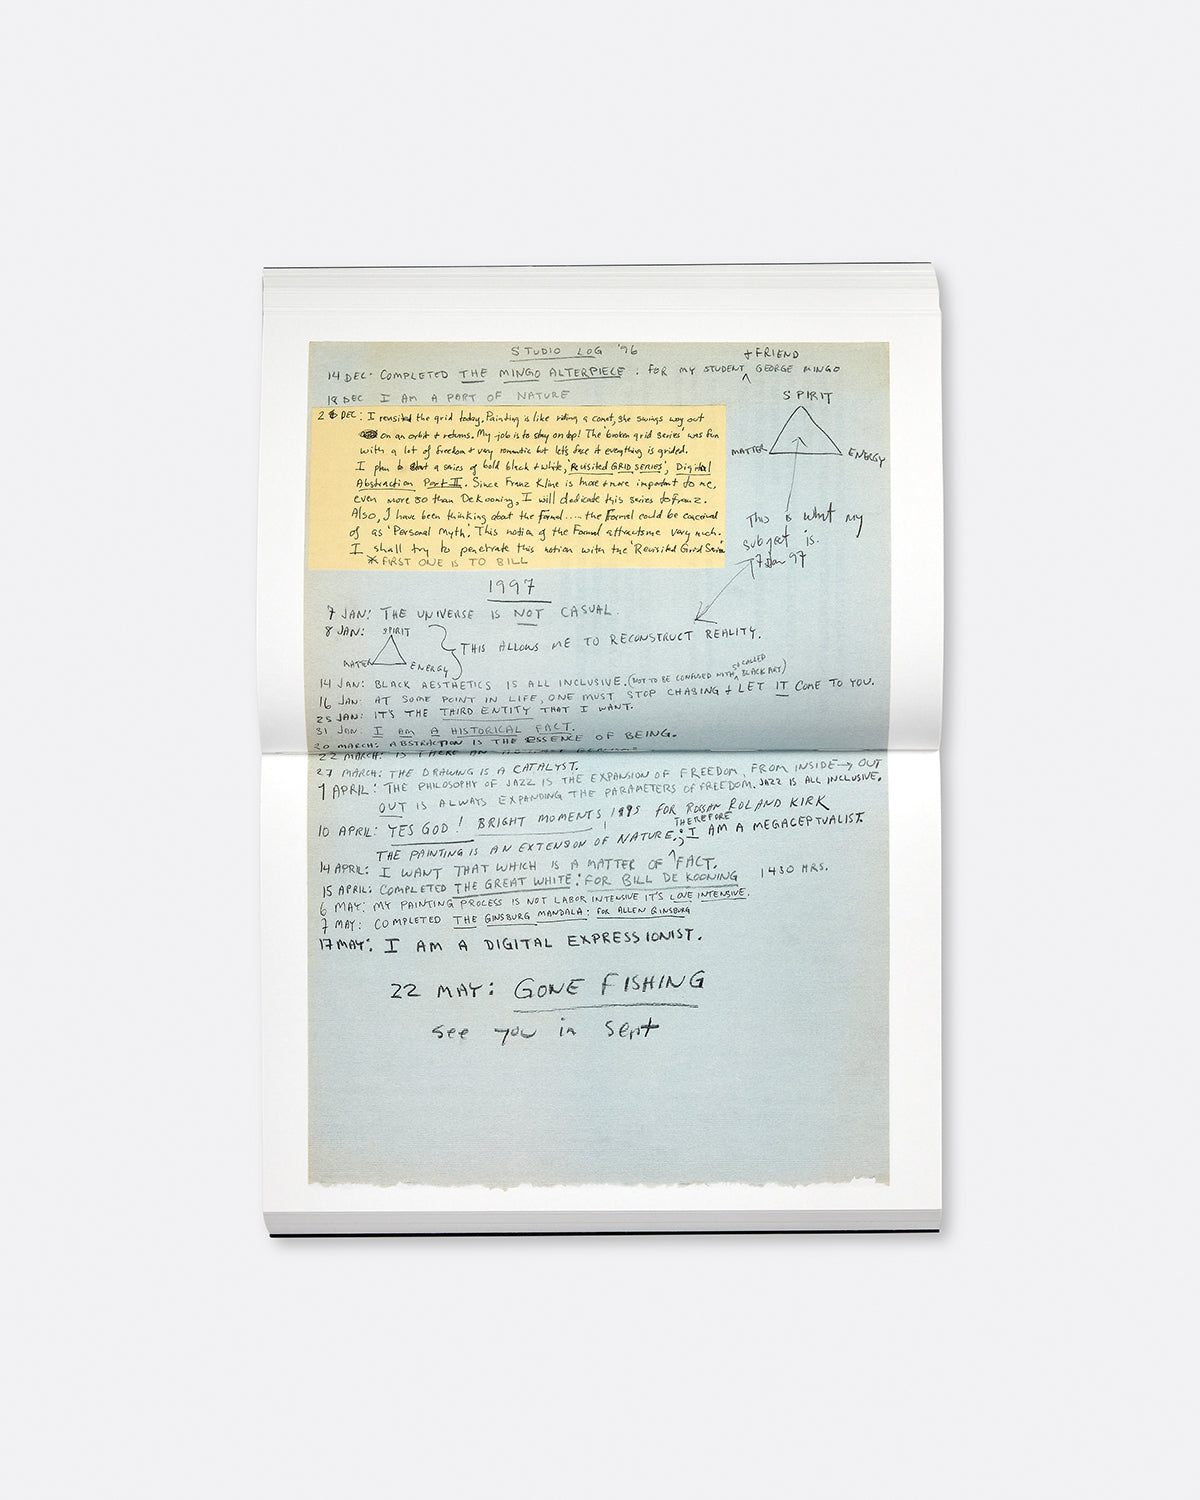 STUDIO LOG '96
+ FRIEND
14 DEC. COMPLETED THE MINGO ALTERPIECE. FOR MY STUDENT ^ GEORGE MINGO
18 DEC I AM A PART OF NATURE
SPIRIT
MATTER ENERGY
This is what my
subject is.
7 Jan 97
DEC: I revisited the grid today. Painting is like riding a comet, she swings way out
on an orbit + returns. My job is to stay on top! The 'broken grid series' was fun
with a lot of freedom + very romantic but let's face it everything is grided.
I plan to start a series of bold black + white, 'REVISITED GRID SERIES', Digital
Abstraction Part II. Since Franz Kline is more + more important to me,
even more so than DeKooning, I will dedicate this series to Franz.
Also, I have been thinking about the Formal.... the Formal could be conceived
of as 'Personal Myth'. This notion of the Formal attracts me very much.
I shall try to penetrate this notion with the 'Revisited Grid Series
* FIRST ONE IS TO BILL
1997
7 JAN: THE UNIVERSE IS NOT CASUAL.
8 JAN: SPIRIT
MATER ENERGY } THIS ALLOWS ME TO RECONSTRUCT REALITY.
SO CALLED
14 JAN: BLACK AESTHETICS IS ALL INCLUSIVE. (NOT TO BE CONFUSED WITH ^ BLACK ART)
16 JAN: AT SOME POINT IN LIFE, ONE MUST STOP CHASING + LET IT COME TO YOU.
25 JAN: IT'S THE THIRD ENTITY THAT I WANT.
31 JAN: I AM A HISTORICAL FACT.
20 MARCH: ABSTRACTION IS THE ESSENCE OF BEING.
22 MARCH: IS THERE AN
27 MARCH: THE DRAWING IS A CATALYST.
1 APRIL: THE PHILOSOPHY OF JAZZ IS THE EXPANSION OF FREEDOM, FROM INSIDE → OUT
OUT IS ALWAYS EXPANDING THE PARAMETERS OF FREEDOM. JAZZ IS ALL INCLUSIVE.
10 APRIL: YES GOD! BRIGHT MOMENTS 1995 FOR ROLAND KIRK
THEREFORE
THE PAINTING IS AN EXTENSION OF NATURE; I AM A MEGACEPTUALIST.
14 APRIL: I WANT THAT WHICH IS A MATTER OF ^ FACT.
15 APRIL: COMPLETED THE GREAT WHITE: FOR BILL DE KOONING 1430 HRS.
6 MAY: MY PAINTING PROCESS IS NOT LABOR INTENSIVE IT'S LOVE INTENSIVE.
7 MAY: COMPLETED THE GINSBURG MANDALA: FOR ALLEN GINSBURG
17 MAY: I AM A DIGITAL EXPRESSIONIST.
22 MAY: GONE FISHING
see you in Sept